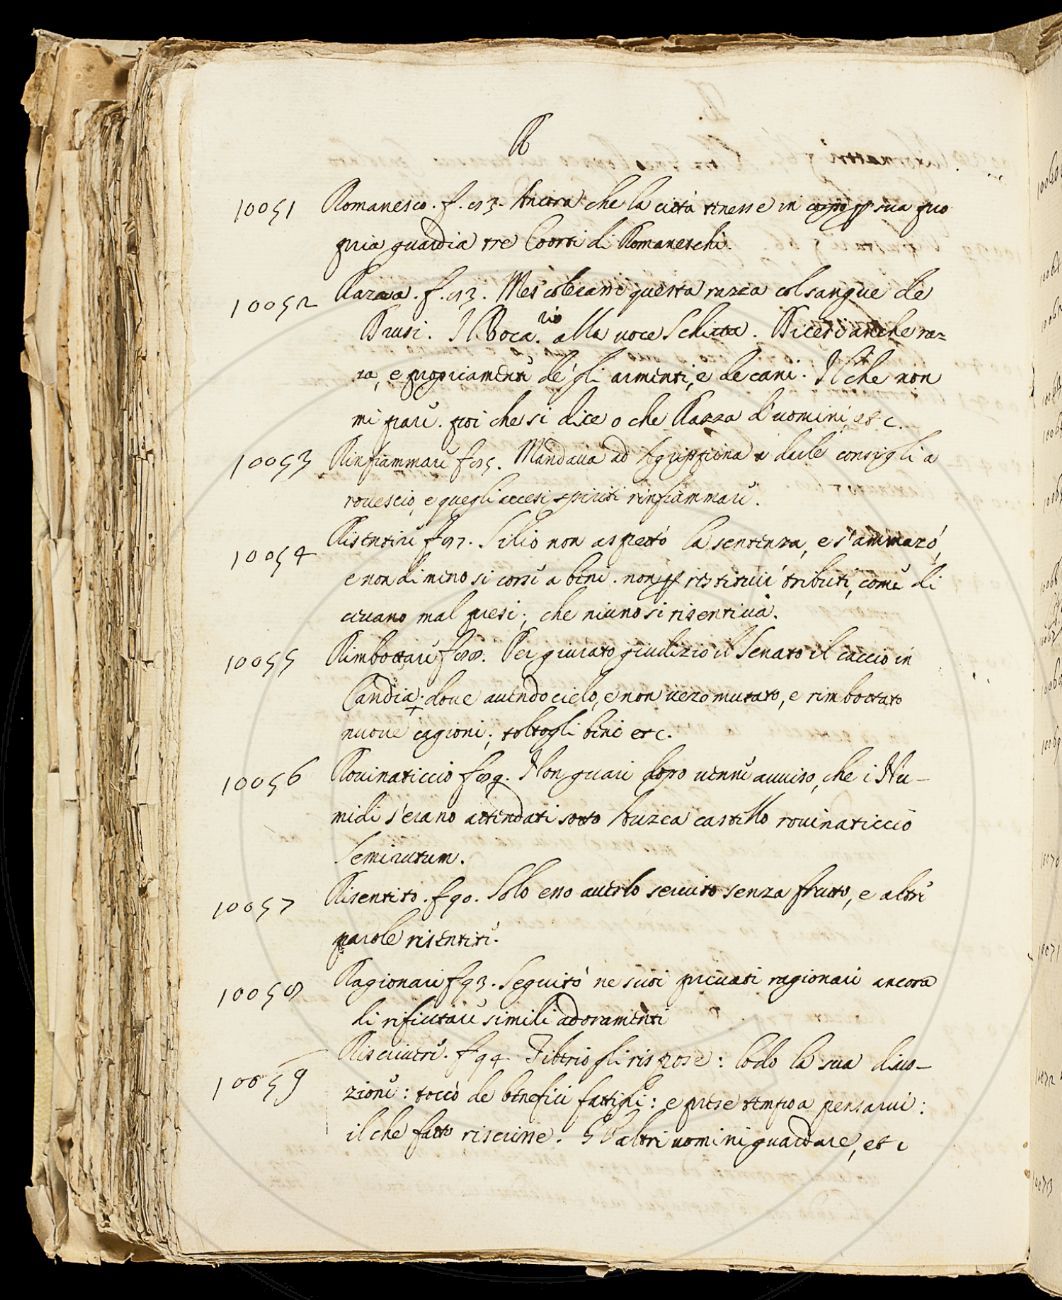 R
10051 Romanesco. f. 73. Ancora che la città tenesse in corpo per sua pro
pria guardia tre Coorti di Romaneschi.
10052 Razza. f. 73. Mescolerami questa razza col sangue de
Drusi. Il Vocario. alla voce Schiatta. Dicesi anche raz-
za, e propriamente de gli armenti, e de cani. Il che non
mi pare. poi che si dice o che Razza d'uomini, etc.
10053 Rinfiammare f. 75. Mandava ad Agrippina a darle consigli a
rovescio, e quegli accesi spiriti rinfiammare.
10054 Risentire f. 77. Silio non aspettò la sentenza, e s'ammazzò,
e non di meno si corse a beni. non per restituire tributi, come di
cevano mal presi; che niuno si risentiva.
10055 Rimbottare f. 88. Per giurato giudizio il Senato il cacciò in
Candia; dove avendo cielo, e non vezo mutato, e rimbottato
nuove cagioni; toltogli beni etc.
10056 Rovinaticcio f. 89. Non guari dopo venne avviso, che i Nu-
midi s'erano attendati sotto Auzea castello rovinaticcio
semirutum.
10057 Risentito. f. 90. Solo esso averlo servito senza frutto, e altre
parole risentite.
10058 Ragionari f. 93. Seguitò ne suoi privati ragionari ancora
di rifiutare simili adoramenti
10059 Riscrivere. f. 94. Tiberio gli rispose: lodo la sua divo-
zione: toccò de benefici fattigli: e prese tempo a pensarvi:
il che fatto riscrisse. Gli altri uomini guardare, et c